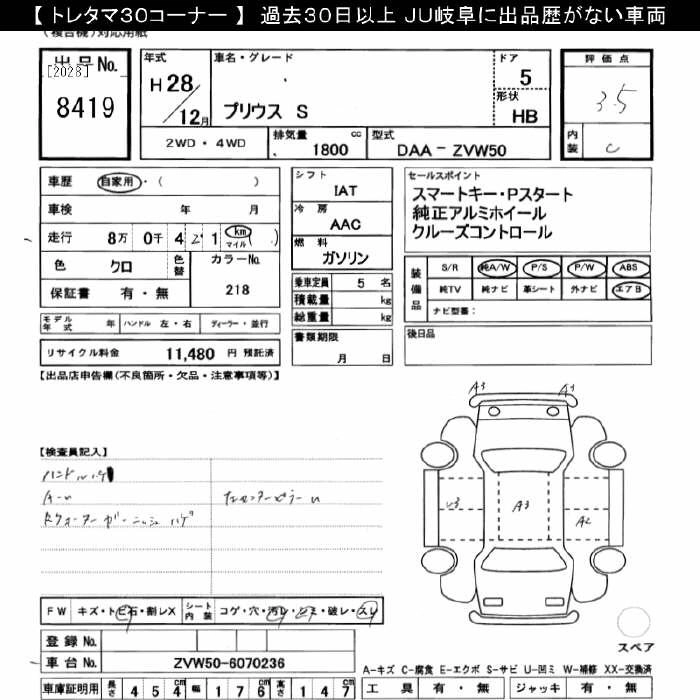 【 トレタマ30コーナー 】 過去30日以上 JU岐阜に出品歴がない車両
(複合機)対応用紙
出品No.
[2028]
8419
年式
H28/12月
車名・グレード
プリウス S
ドア
5
形状
HB
2WD ・ 4WD
排気量 cc
1800
型式
DAA－ZVW50
評価点
3.5
内装
C
車歴 自家用・( )
車検 年 月
走行 8万 0千 4 2 1 km マイル ( )
色 クロ
色替
カラーNo.
218
保証書 有・無
シフト
IAT
冷房
AAC
燃料
ガソリン
乗車定員 5 名
積載量 kg
総重量 kg
セールスポイント
スマートキー・Pスタート
純正アルミホイール
クルーズコントロール
装備品
S/R 純A/W P/S P/W ABS
純TV 純ナビ 革シート 外ナビ エアB
ナビ型番：
モデル年式 年 ハンドル 左・右 ディーラー・並行
リサイクル料金 11,480 円 預託済
書類期限
月 日
後日品
【出品店申告欄(不良箇所・欠品・注意事項等)】
A3
【検査員記入】
ハンドルハゲ
A-u
U3
A3
A2
FW キズ・トビ石・割レX
シート内装 コゲ・穴・汚レ・シミ・破レ・スレ
登録No.
車台No. ZVW50-6070236
スペア
A－キズ C－腐食 E－エクボ S－サビ U－凹ミ W－補修 XX－交換済
車庫証明用 長さ 4 5 4 cm 幅 1 7 6 cm 高さ 1 4 7 cm
工具 有・無 ジャッキ 有・無